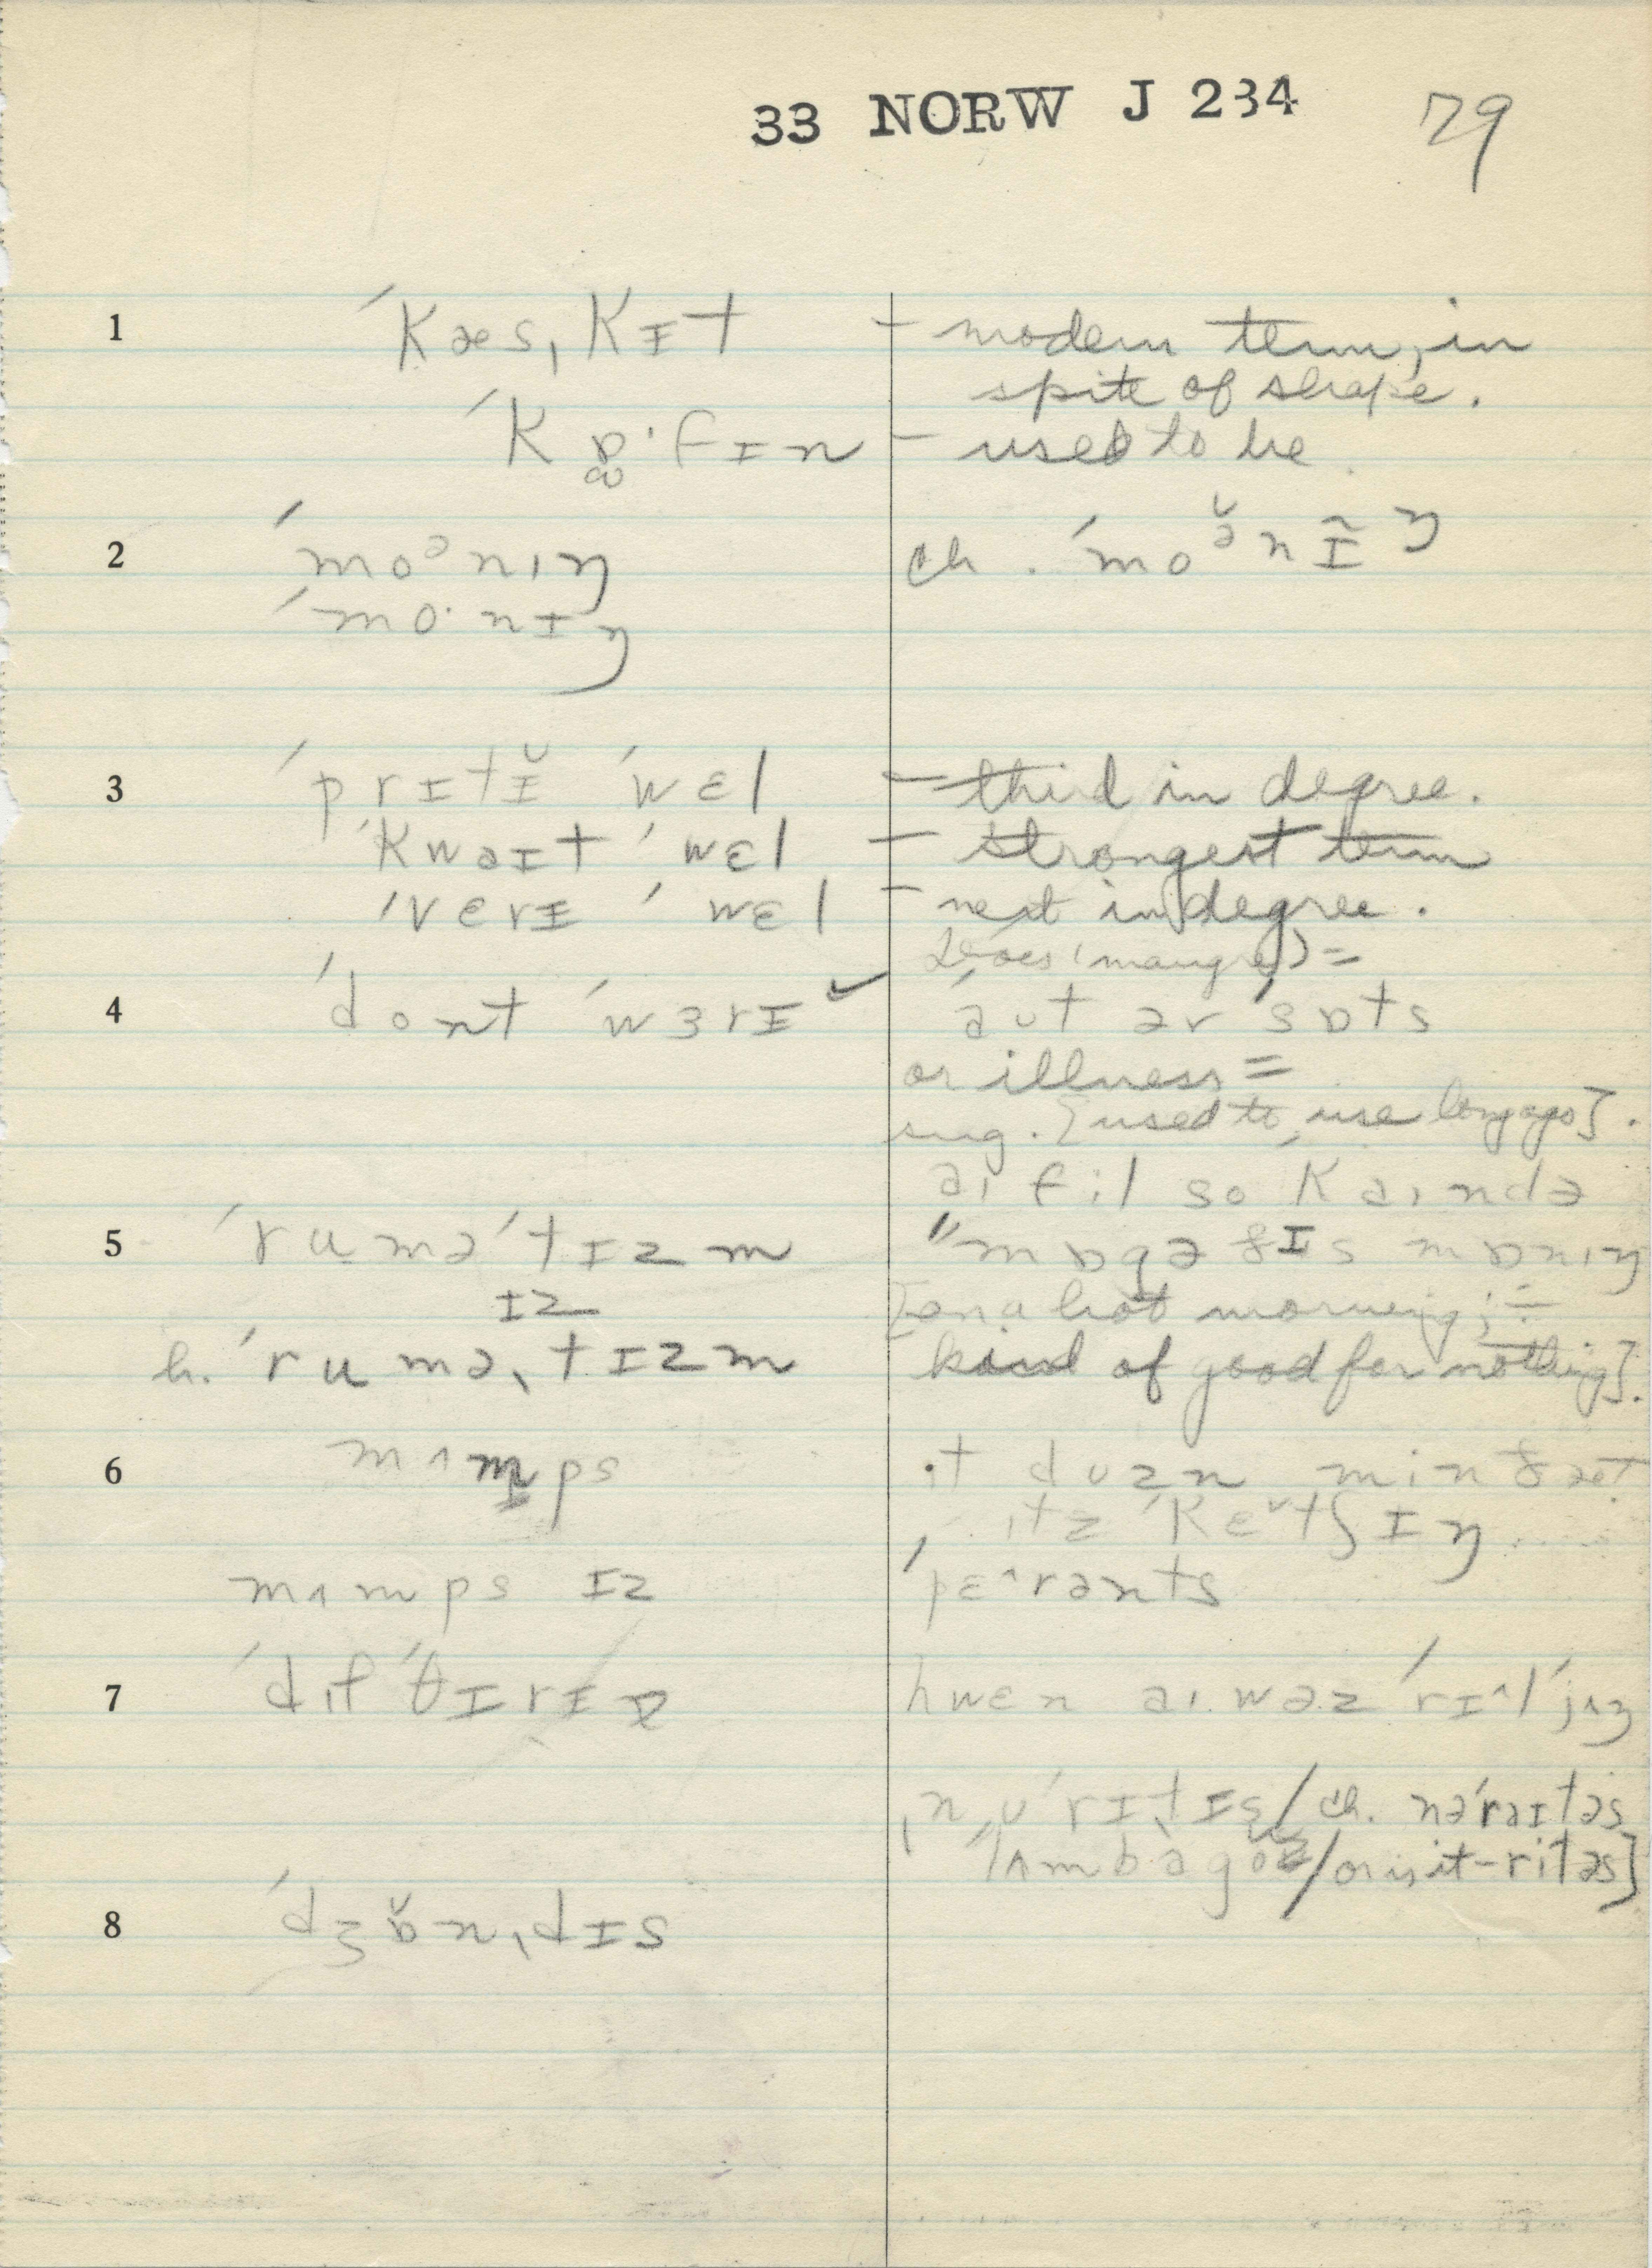 33 NORW J 234 79
1 ´kæs,kɪt – modern term, in
spite of shape.
´kɒ·fɪn – used to be
2 ´moᵊnɪŋ ch. ´moᵊ̆nɪ̃ŋ
´mo·nɪŋ
3 ´prɪtɪ̆ ´wɛl – third in degree.
´kwəɪt ´wɛl – strongest term
´vɛrɪ ´wɛl – next in degree.
4 ´dont ´wɜrɪ ✓ ´aut ər ´sɒts
or illness =
sug. [used to use long ago].
aɪ fil so ´kaɪndə
5 ´rumə´tɪzm "mɒgə ðɪs mɒnɪŋ
ɪz [on a hot morning; =
h. ´rumə,tɪzm kind of good for nothing].
6 mʌmps ɪt dʌzn min ðæt
ɪts ´kɛ˅tʃɪŋ
mʌmps ɪz ´pɛ^rənts
7 ´dɪf´θɪrɪə hwɛn aɪ wəz ´rɪ^l ´jʌŋ
,nu´rɪtɪs / ch. nə´rəɪtəs
´lʌmbəgo / or is it -ritəs]
8 ´dʒɒ̆n,dɪs